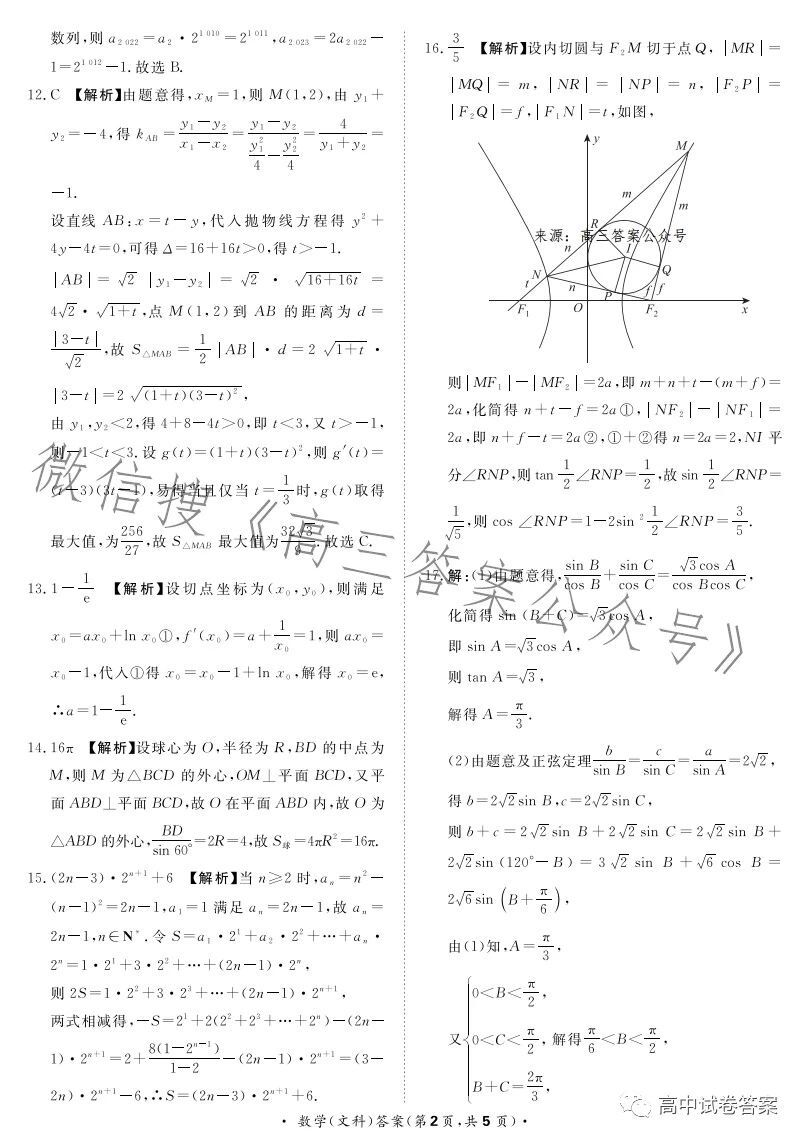 数列,则 a₂₀₂₂=a₂·2¹⁰¹⁰=2¹⁰¹¹,a₂₀₂₃=2a₂₀₂₂-
1=2¹⁰¹²-1.故选 B.
12.C 【解析】由题意得,x_M=1,则 M(1,2),由 y₁+
y₂=-4,得 k_AB=(y₁-y₂)/(x₁-x₂)=(y₁-y₂)/(y₁²/4-y₂²/4)=4/(y₁+y₂)=
-1.
设直线 AB:x=t-y,代入抛物线方程得 y²+
4y-4t=0,可得 Δ=16+16t>0,得 t>-1.
|AB|=√2|y₁-y₂|=√2·√(16+16t)=
4√2·√(1+t),点 M(1,2)到 AB 的距离为 d=
|3-t|/√2,故 S△MAB=1/2|AB|·d=2√(1+t)·
|3-t|=2√((1+t)(3-t)²),
由 y₁,y₂<2,得 4+8-4t>0,即 t<3,又 t>-1,
则-1<t<3.设 g(t)=(1+t)(3-t)²,则 g′(t)=
(t-3)(3t-1),易得当且仅当 t=1/3 时,g(t)取得
最大值,为256/27,故 S△MAB 最大值为32√3/9.故选 C.
13.1-1/e 【解析】设切点坐标为(x₀,y₀),则满足
x₀=ax₀+ln x₀①,f′(x₀)=a+1/x₀=1,则 ax₀=
x₀-1,代入①得 x₀=x₀-1+ln x₀,解得 x₀=e,
∴a=1-1/e.
14.16π 【解析】设球心为 O,半径为 R,BD 的中点为
M,则 M 为△BCD 的外心,OM⊥平面 BCD,又平
面 ABD⊥平面 BCD,故 O 在平面 ABD 内,故 O 为
△ABD 的外心,BD/sin 60°=2R=4,故 S球=4πR²=16π.
15.(2n-3)·2ⁿ⁺¹+6 【解析】当 n≥2 时,aₙ=n²-
(n-1)²=2n-1,a₁=1 满足 aₙ=2n-1,故 aₙ=
2n-1,n∈N*.令 S=a₁·2¹+a₂·2²+…+aₙ·
2ⁿ=1·2¹+3·2²+…+(2n-1)·2ⁿ,
则 2S=1·2²+3·2³+…+(2n-1)·2ⁿ⁺¹,
两式相减得,-S=2¹+2(2²+2³+…+2ⁿ)-(2n-
1)·2ⁿ⁺¹=2+8(1-2ⁿ⁻¹)/(1-2)-(2n-1)·2ⁿ⁺¹=(3-
2n)·2ⁿ⁺¹-6,∴S=(2n-3)·2ⁿ⁺¹+6.
16.3/5 【解析】设内切圆与 F₂M 切于点 Q,|MR|=
|MQ|=m,|NR|=|NP|=n,|F₂P|=
|F₂Q|=f,|F₁N|=t,如图,
y
M
m
m
R
来源:高三答案公众号
n
I
N
Q
t
n
P
f
f
F₁
O
F₂
x
则|MF₁|-|MF₂|=2a,即 m+n+t-(m+f)=
2a,化简得 n+t-f=2a①,|NF₂|-|NF₁|=
2a,即 n+f-t=2a②,①+②得 n=2a=2,NI 平
分∠RNP,则 tan 1/2∠RNP=1/2,故 sin 1/2∠RNP=
1/√5,则 cos ∠RNP=1-2sin² 1/2∠RNP=3/5.
17.解:(1)由题意得,sin B/cos B+sin C/cos C=√3cos A/(cos Bcos C),
化简得 sin (B+C)=√3cos A,
即 sin A=√3cos A,
则 tan A=√3,
解得 A=π/3.
(2)由题意及正弦定理b/sin B=c/sin C=a/sin A=2√2,
得 b=2√2sin B,c=2√2sin C,
则 b+c=2√2 sin B+2√2 sin C=2√2 sin B+
2√2sin (120°-B)=3√2 sin B+√6 cos B=
2√6sin (B+π/6),
由(1)知,A=π/3,
又{0<B<π/2,
0<C<π/2,解得π/6<B<π/2,
B+C=2π/3,
微信搜《高三答案公众号》
高中试卷答案
·数学(文科)答案(第2页,共5页)·